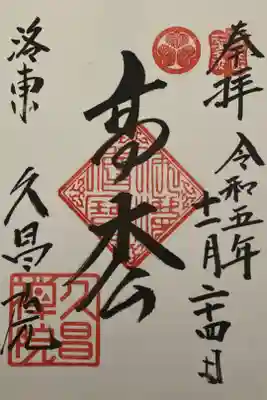 奉拝
令和五年
十一月二十四日
高枩
洛東
久昌院
久昌
禅院